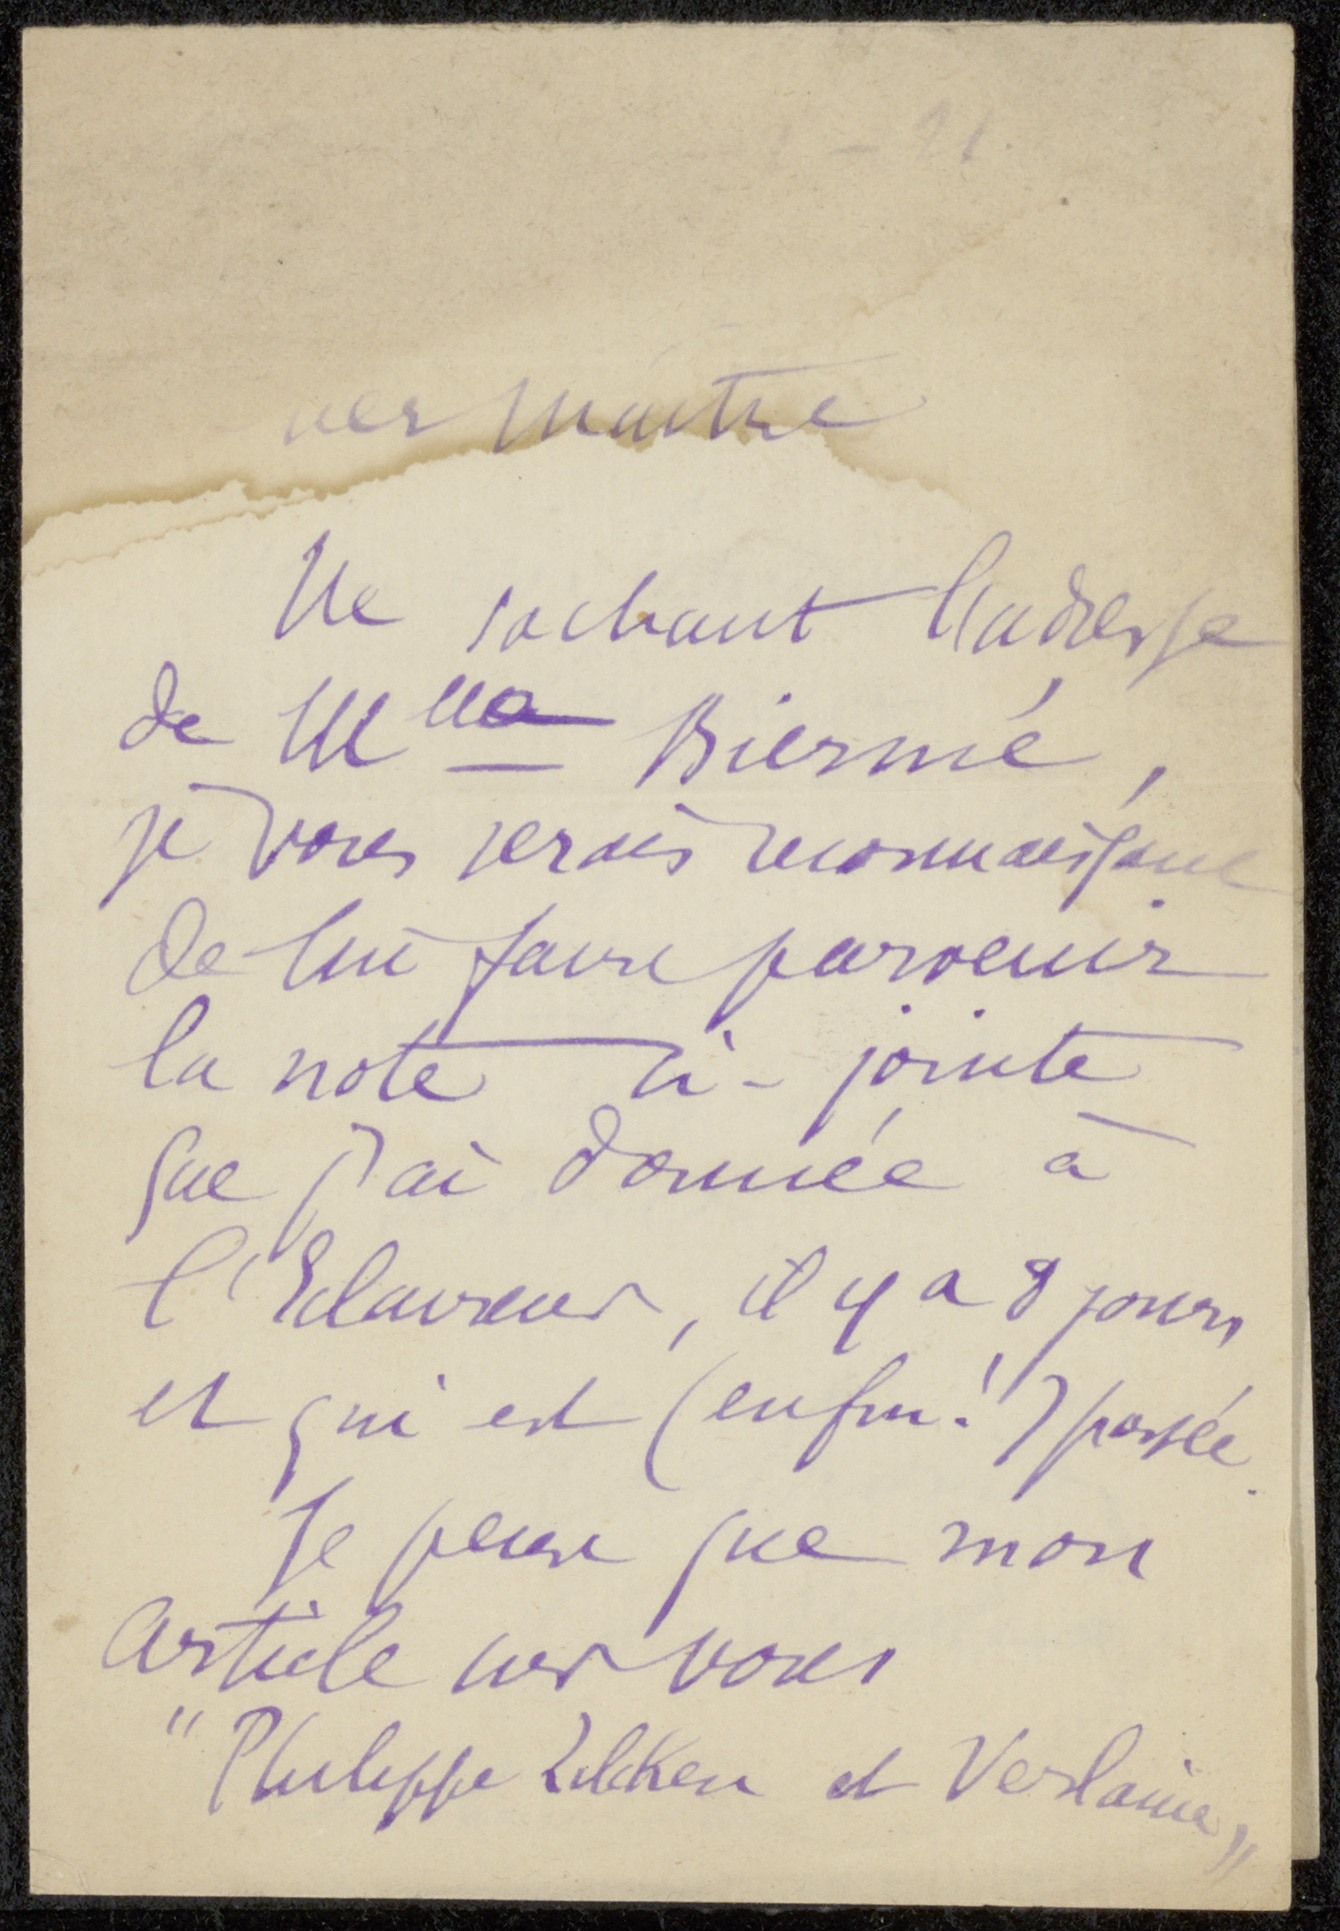 - 21
Maitre
Ne sachant l'adresse
de Mlle Biermé,
je vous serais reconnaissant
de lui faire parvenir
la note ci-jointe
que j'ai donnée à
l'Eclaireur, il y a 8 jours,
et qui est (enfin!) passée.
Je pense que mon
article sur vous
"Philippe Zilcken et Verlaine"